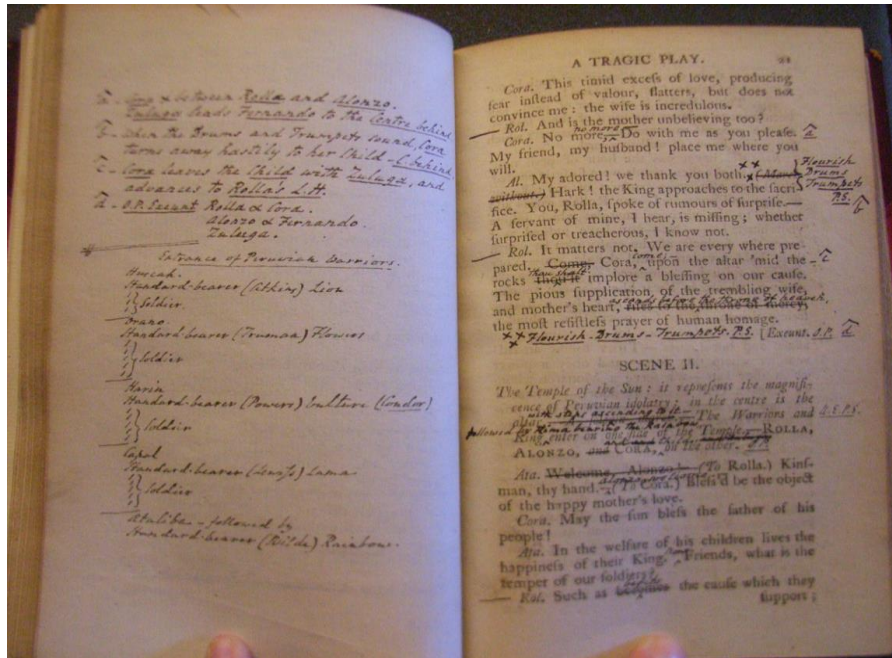 a - Cora X between Rolla and Alonzo.
Zuluga leads Fernando to the Centre behind
b - When the Drums and Trumpets sound, Cora
turns away hastily to her Child - (behind
c - Cora leaves the Child with Zuluga, and
advances to Rolla's L.H.
d - O.P. Exeunt Rolla & Cora.
Alonzo & Fernando.
Zuluga.
Entrance of Peruvian Warriors.
Huscah.
Standard-bearer (Atkins) Lion
Soldier.
Orano.
Standard-bearer (Trueman) Flowers
Soldier
Harin
Standard-bearer (Powers) Vulture (Condor)
Soldier
Capal
Standard-bearer Lama
Soldier
Ataliba - followed by
Standard-bearer (Wilde) Rainbow.
A TRAGIC PLAY.
Cora. This timid exceſs of love, producing
fear inſtead of valour, flatters, but does not
convince me: the wife is incredulous.
Rol. And is the mother unbelieving too?
no more
Cora. No more, Do with me as you pleaſe. a
My friend, my huſband! place me where you
will.
Al. My adored! we thank you both. (March
Flourish
Drums
Trumpets
P.S.
b
without.) Hark! the King approaches to the ſacri-
fice. You, Rolla, ſpoke of rumours of ſurpriſe.—
A ſervant of mine, I hear, is miſſing; whether
ſurpriſed or treacherous, I know not.
Rol. It matters not. We are every where pre-
pared. Come, Cora, come upon the altar 'mid the - c
thou shalt
rocks implore a bleſſing on our cauſe.
The pious ſupplication of the trembling wife,
ascends before the throne of heaven,
and mother's heart, riſes to the throne of mercy,
the moſt reſiſtleſs prayer of human homage.
Flourish - Drums - Trumpets. P.S. [Exeunt. O.P. d
SCENE II.
The Temple of the Sun: it repreſents the magnifi-
cence of Peruvian idolatry; in the centre is the
with steps ascending to it
altar. — The Warriors and
followed by bearing the Rainbow
King enter on one ſide of the Temple.—ROLLA,
ALONZO, and CORA, on the other.
Ata. Welcome, Alonzo!—(To Rolla.) Kinſ-
man, thy hand.—(To Cora.) Bleſs'd be the object
of the happy mother's love.
Cora. May the ſun bleſs the father of his
people!
Ata. In the welfare of his children lives the
happineſs of their King. Friends, what is the
temper of our ſoldiers?
Rol. Such as becomes the cauſe which they
ſupport;